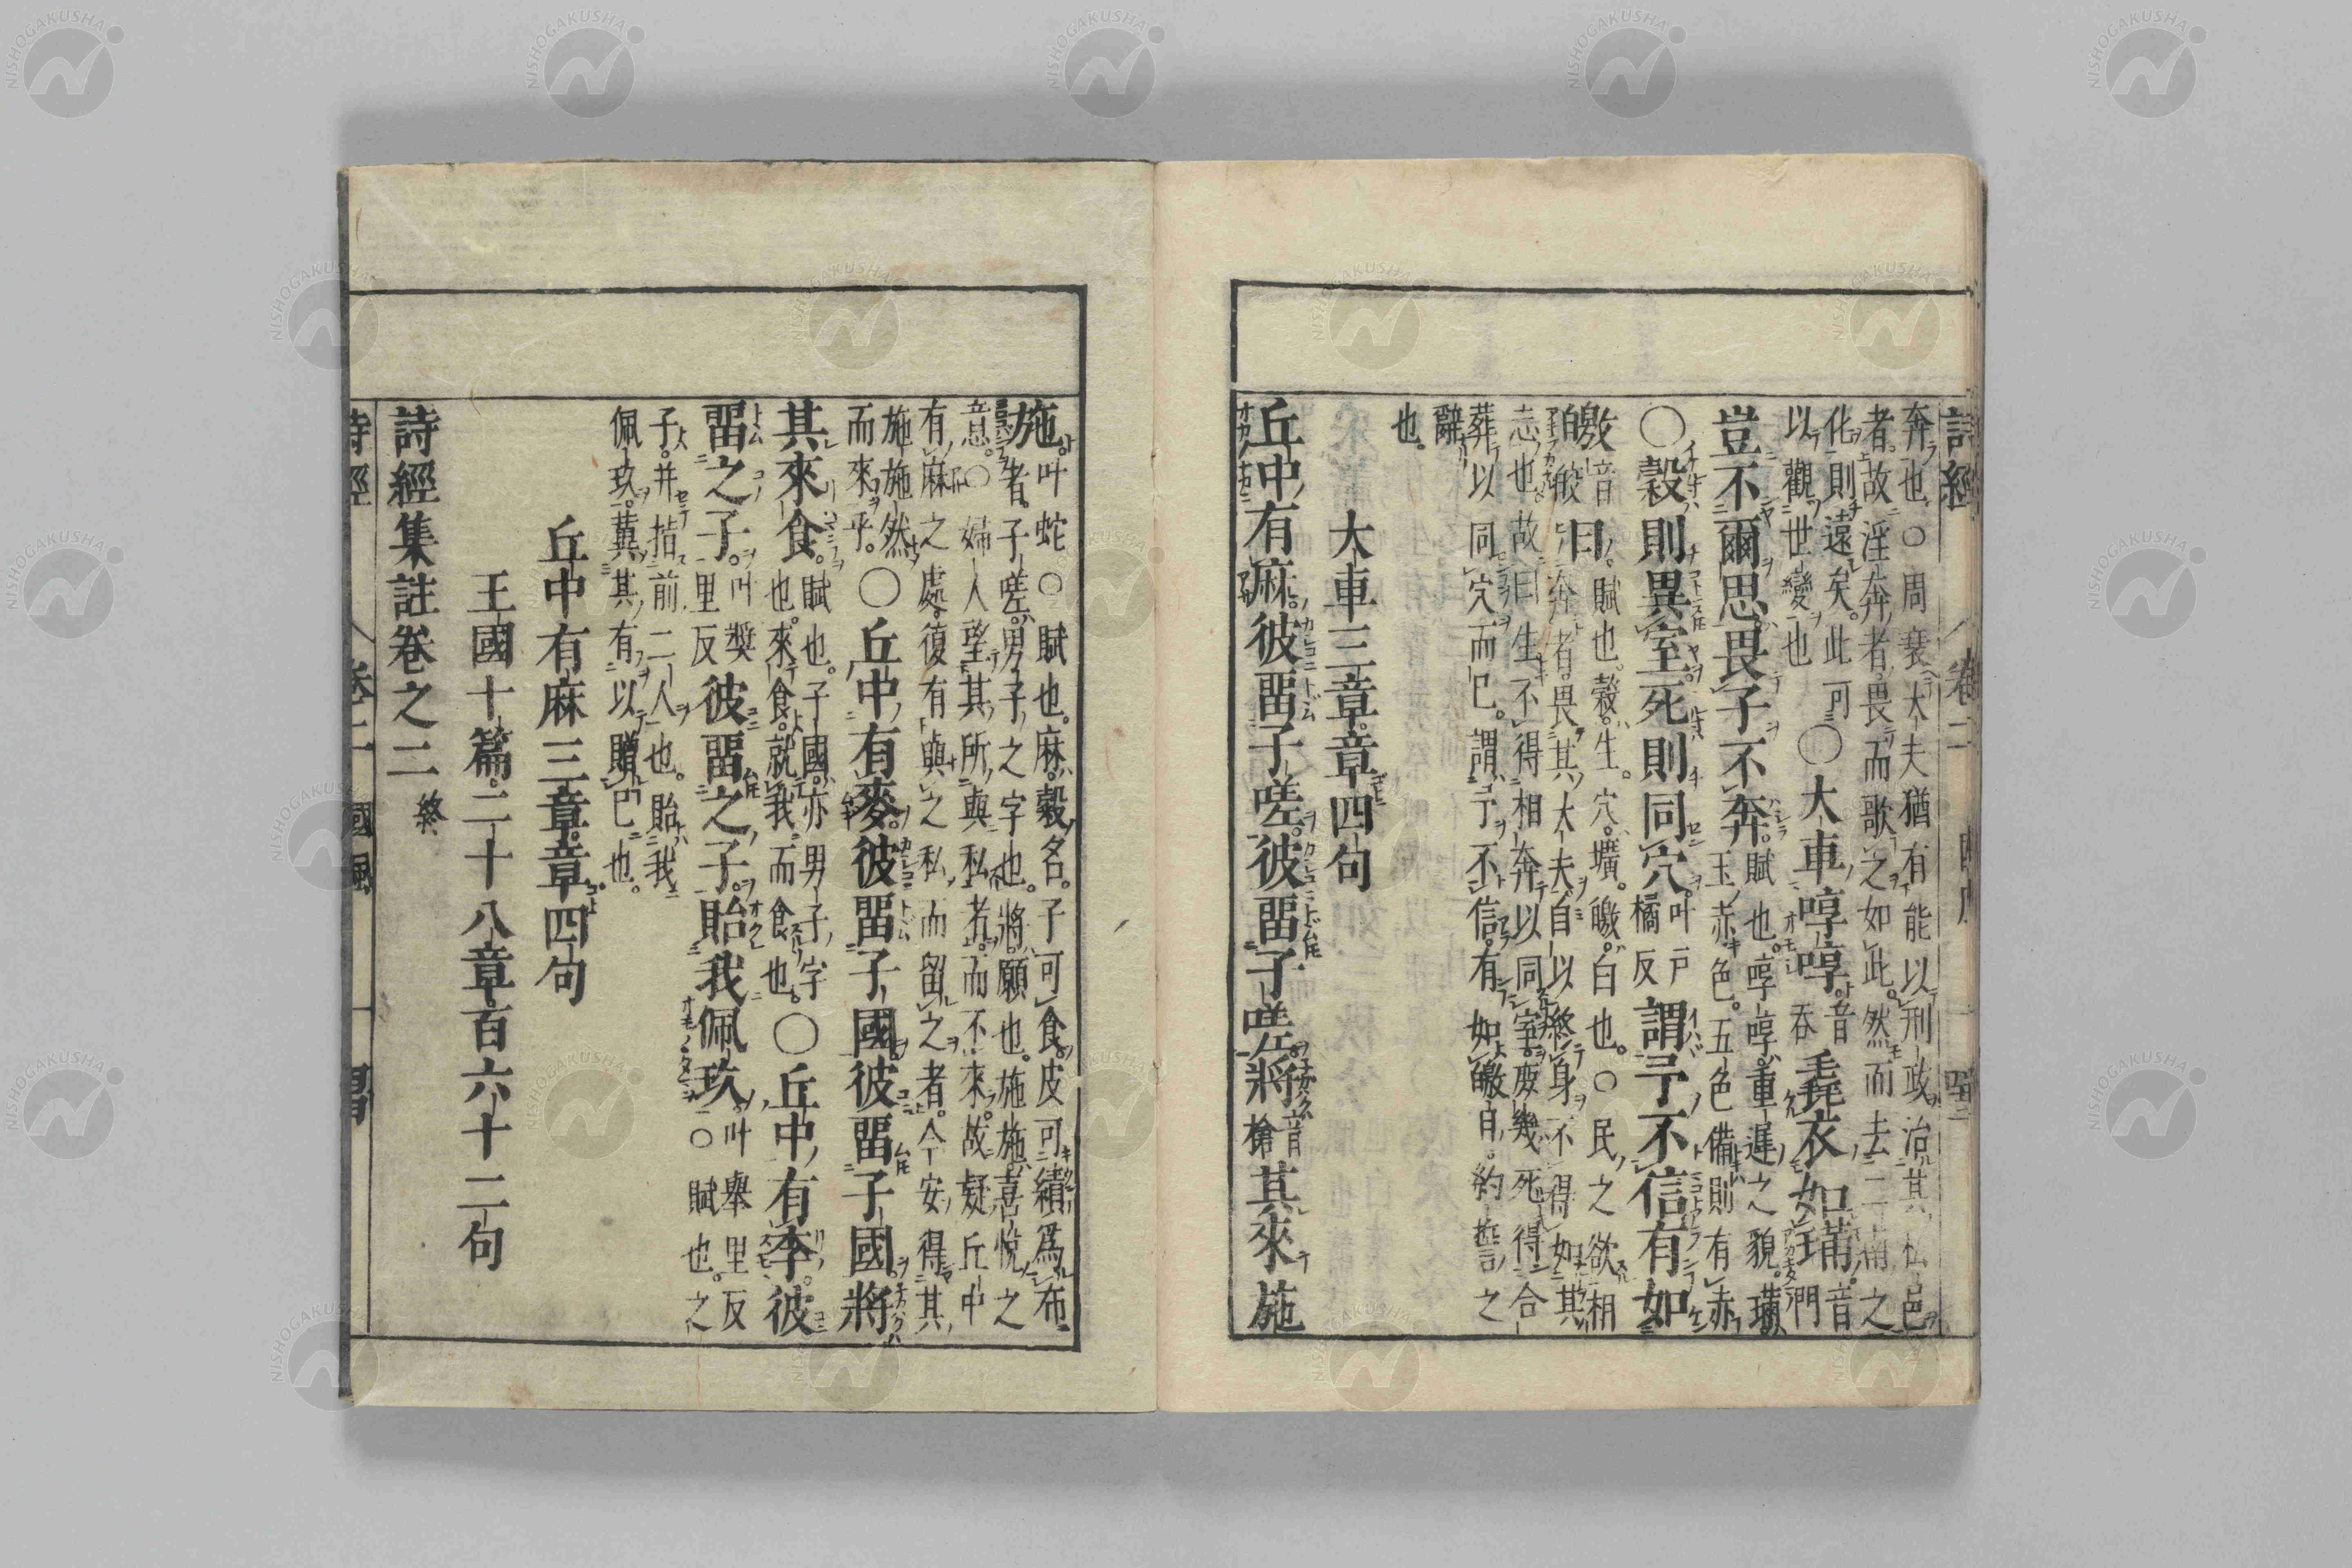 奔也○周衰大夫猶有能以刑政治其私邑
者故淫奔者畏而歌之如此然而去二南之
化則遠矣此可
以觀世變也
○大車啍啍音
吞毳衣如璊音
門
豈不爾思畏子不奔賦也啍啍重遲之貌璊
玉赤色五色備則有赤
○穀則異室死則同穴叶戶
橘反謂予不信有如
皦音
皎日賦也穀生穴壙皦白也○民之欲相
奔者畏其大夫自以終身不得如其
志也故曰生不得相奔以同室庶幾死得合
葬以同穴而已謂予不信有如皦日約誓之
辭
也
大車三章章四句
丘中有麻彼畱子嗟彼畱子嗟將音
槍其來施
施叶蛇○賦也麻穀名子可食皮可績爲布
者子嗟男子之字也將願也施施喜悅之
意○婦人望其所與私者而不來故疑丘中
有麻之處復有與之私而留之者今安得其
施施然
而來乎
○丘中有麥彼畱子國彼畱子國將
其來食賦也子國亦男子字
也來食就我而食也○丘中有李彼
畱之子叶獎
里反彼畱之子貽我佩玖叶舉里反
○賦也之
子并指前二人也貽我
佩玖冀其有以贈已也
丘中有麻三章章四句
王國十篇二十八章百六十二句
詩經集註卷之二終
詩經 卷二 國風